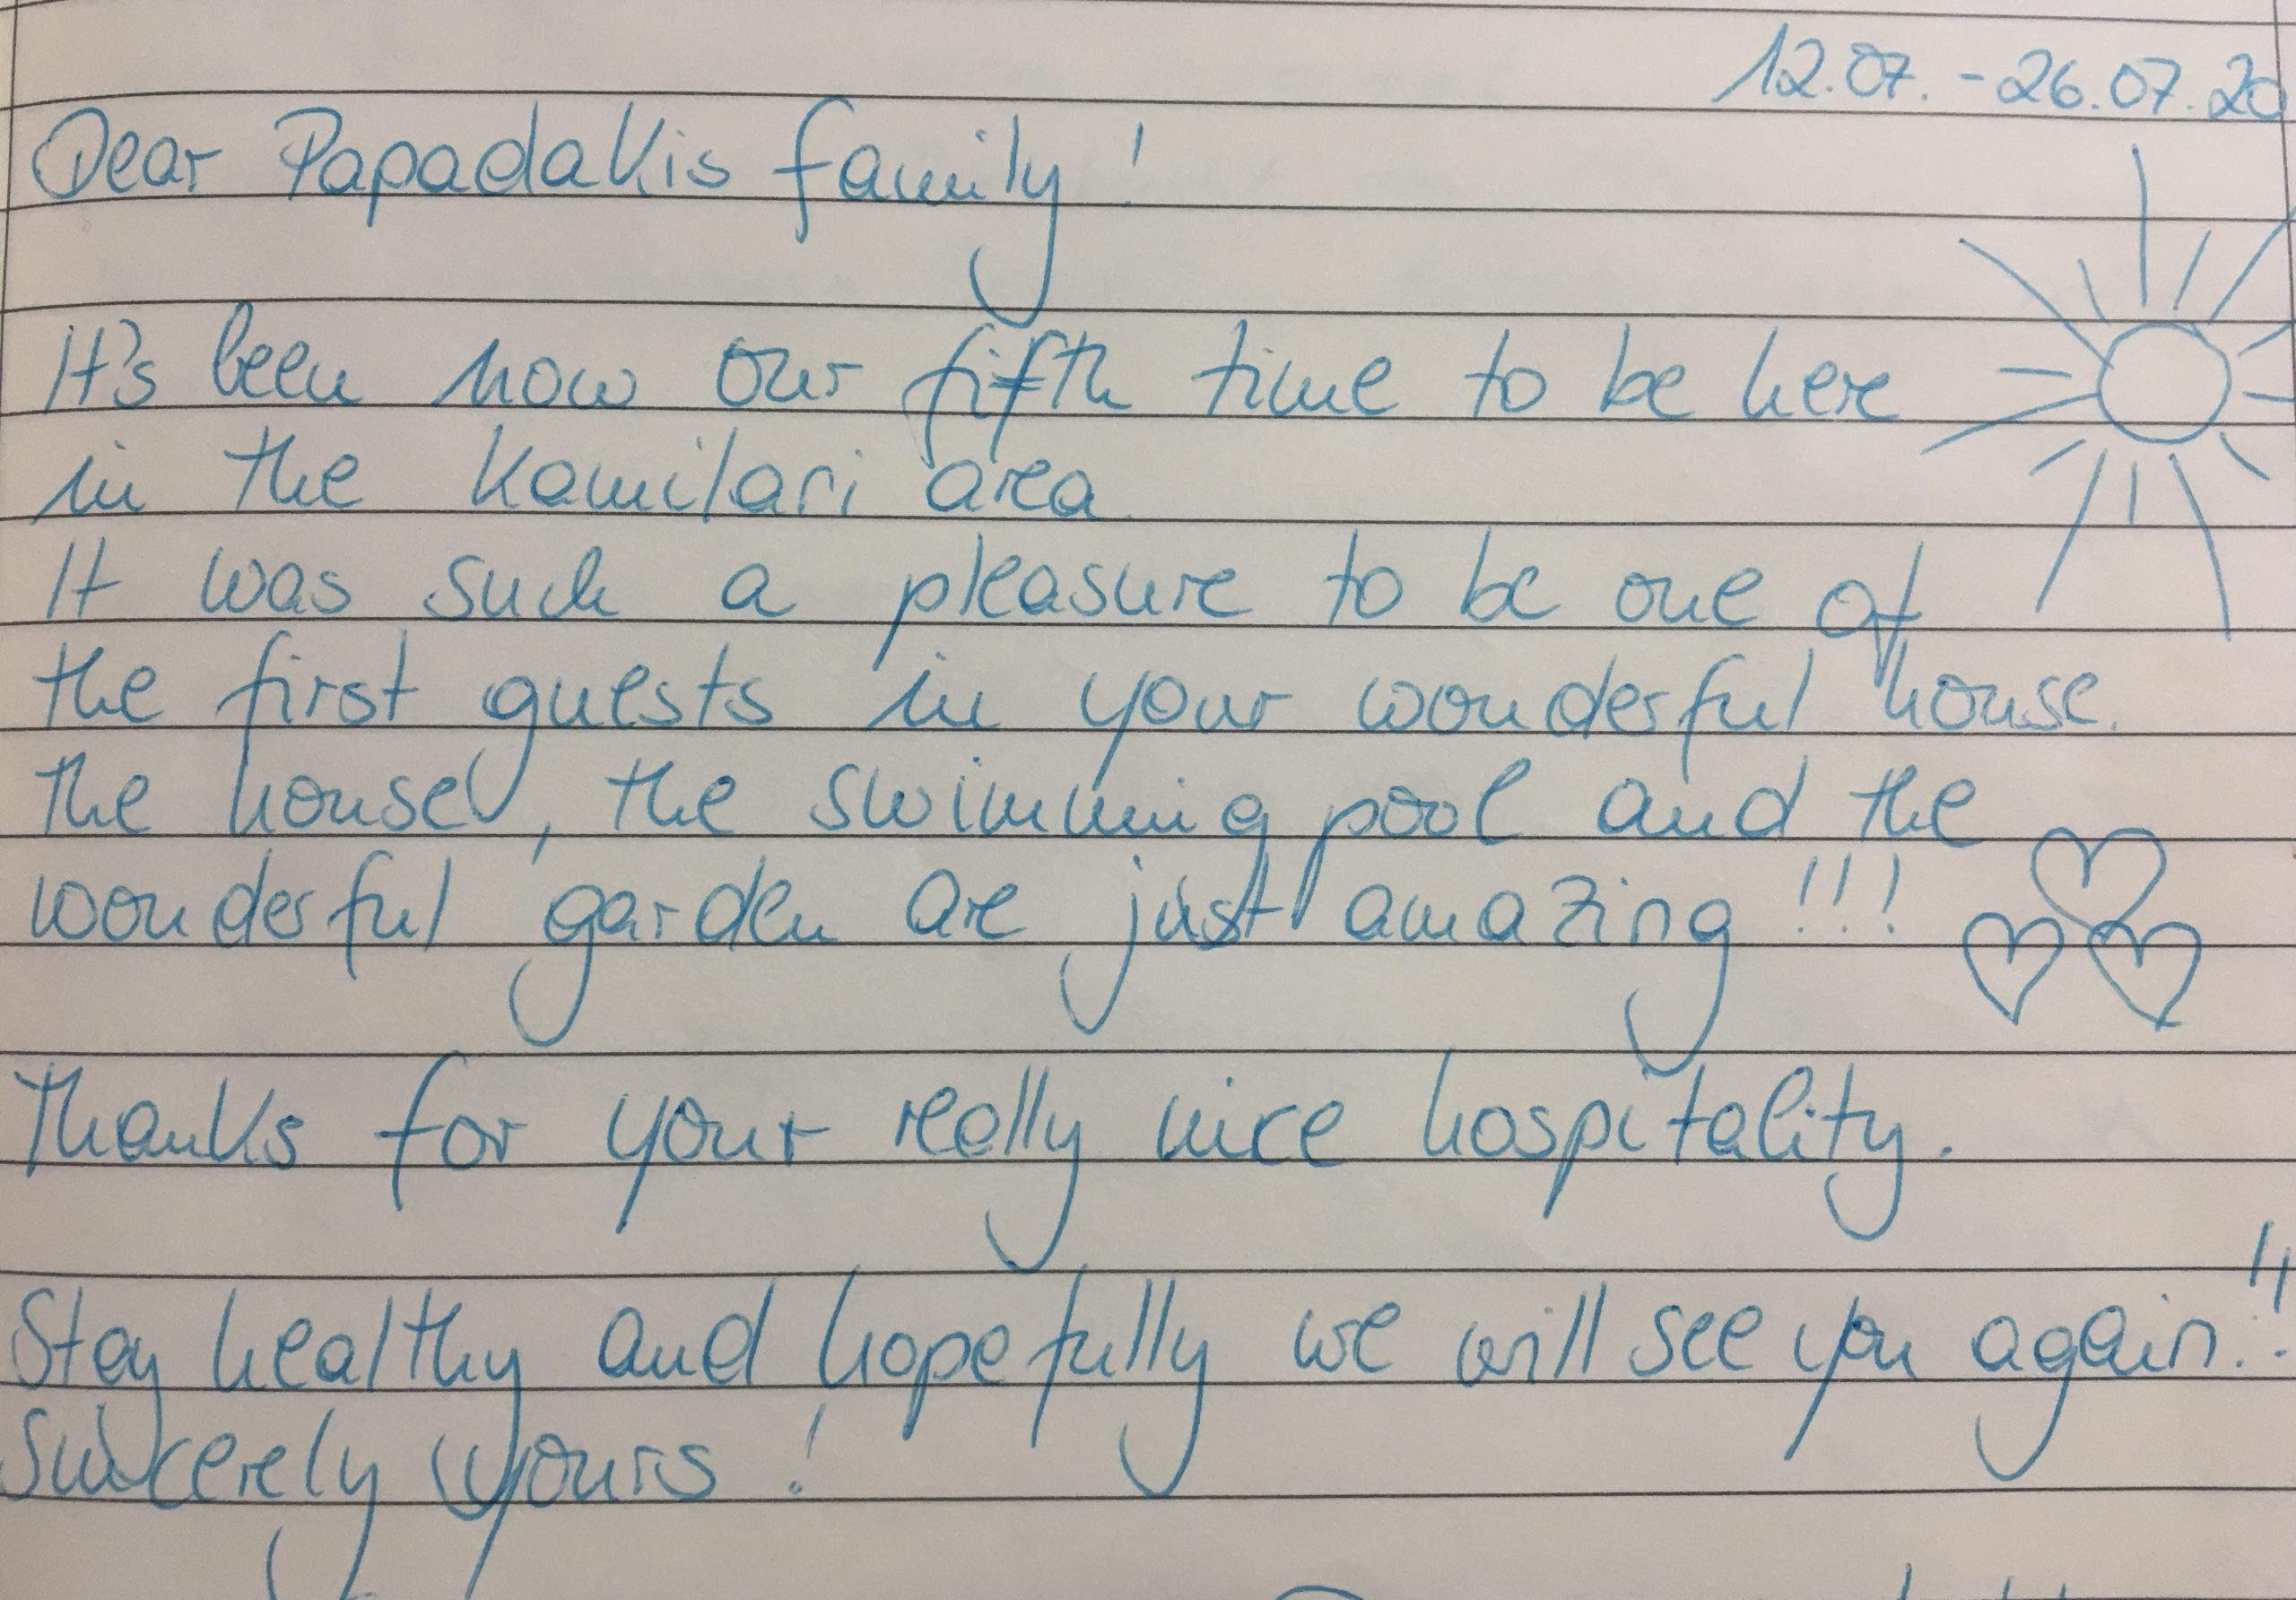 12.07. - 26.07.20
Dear Papadakis family!
It's been now our fifth time to be here
in the Kamilari area.
It was such a pleasure to be one of
the first guests in your wonderful house.
The house, the swimming pool and the
wonderful garden are just amazing!!!
Thanks for your really nice hospitality.
Stay healthy and hopefully we will see you again!!
Sincerely yours!